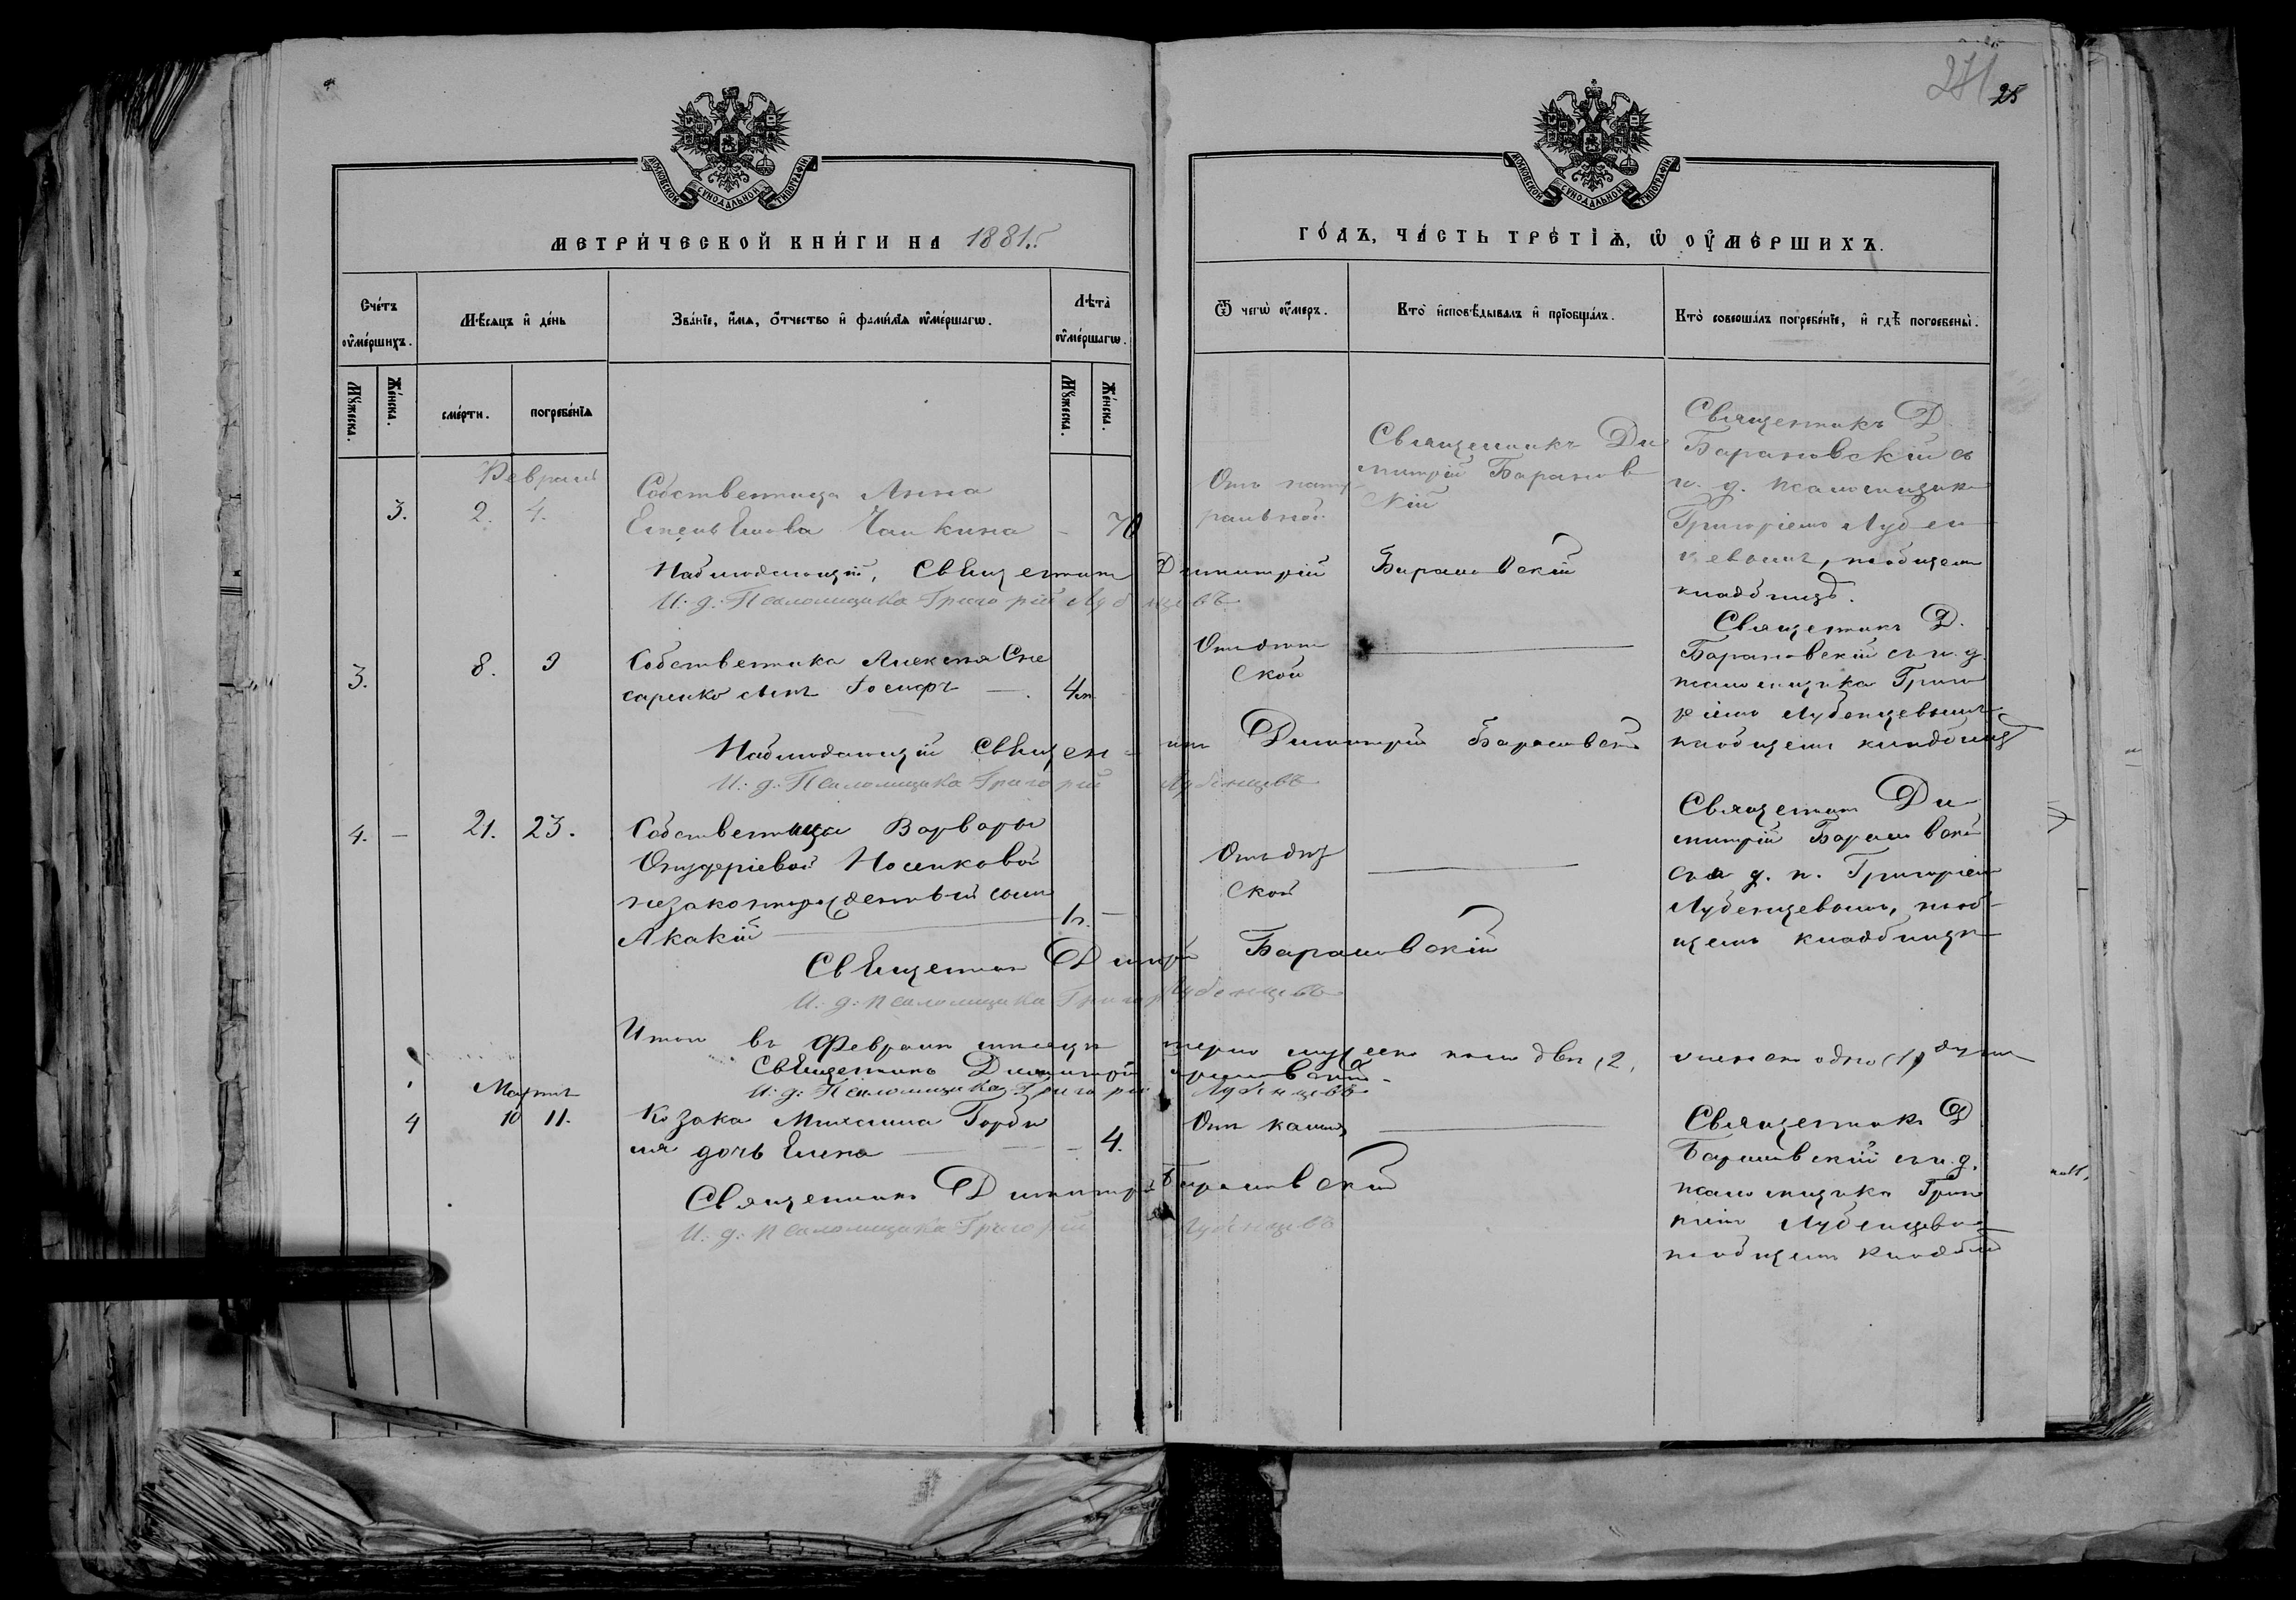 271 25
МОСКОВСКОЙ СѴНОДАЛЬНОЙ ТИПОГРАФІИ
МОСКОВСКОЙ СѴНОДАЛЬНОЙ ТИПОГРАФІИ
МЕТРИ́ЧЕСКОЙ КНИ́ГИ НА 1881.
ГО́ДЪ, ЧА́СТЬ ТРЕ́ТІѦ, Ѡ ОУ҆МЕ́РШИХЪ.
Сче́тъ оу҆ме́ршихъ.
Мѣ́сяцъ и҆ де́нь
Зва́нїе, и҆́мѧ, ѻ҆́тчество и҆ фами́лїѧ оу҆ме́ршагѡ.
Лѣта̀ оу҆ме́ршагѡ.
Ѿ чегѡ̀ оу҆́меръ.
Кто̀ и҆сповѣ́дывалъ и҆ прїобща́лъ.
Кто̀ соверша́лъ погребе́нїе, и҆ гдѣ̀ погребены̀.
Мꙋ́жеска.
Же́нска.
сме́рти.
погребе́нїѧ
Мꙋ́жеска.
Же́нска.
Февраль
3. 2. 4.
Собственница Анна
Чайкина – 70
Отъ нату
ральной
Священникъ Ди
митрій Баранов
скій
Священникъ Д.
Барановскій съ
и. д. псаломщика
Григоріемъ Лубен
цевымъ, на общемъ
кладбищѣ.
Наблюдающій, Священникъ Димитрій Барановскій
И: д: Псаломщика Григорій Лубенцевъ
3. 8. 9
Собственника Алексея Сле
саренко сынъ Іосифъ — 4
Отъ дит
ской
Священникъ Д.
Барановскій съ и. д.
псаломщика Григо
ріемъ Лубенцевымъ
на общемъ кладбищѣ
Наблюдающій Священникъ Димитрій Барановскій
И: д: Псаломщика Григорій Лубенцевъ
4. – 21. 23.
Собственницы Варвары
Носенковой
незаконнорожденный сынъ
Акакій — 1 –
Отъ дит
ской
Священникъ Ди
митрій Барановскій
съ и. д. п. Григоріемъ
Лубенцевымъ, на об
щемъ кладбищѣ
Священникъ Димитрій Барановскій
И: д: псаломщика Григорій Лубенцевъ
Итого въ Февралѣ мѣсяцѣ умерло мужеска пола двѣ (2, женска одно (1) душа
Священникъ Димитрій Барановскій
И: д: Псаломщика Григорій Лубенцевъ
Мартъ
4 10 11.
Козака Михаила Горба
ня дочь Елена – 4.
Отъ кашля
Священникъ Д
Барановскій съ и. д.
псаломщика Григо
ріемъ Лубенцевымъ
на общемъ кладбищѣ
Священникъ Димитрій Барановскій
И: д: псаломщика Григорій Лубенцевъ